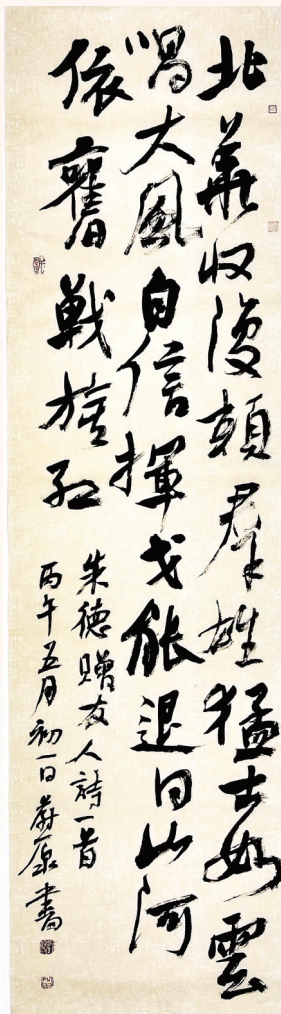 北華收復頼羣雄猛士如雲
唱大風自信揮戈能退日山河
依舊戰旗紅
朱德贈友人詩一首
丙午五月初一日書